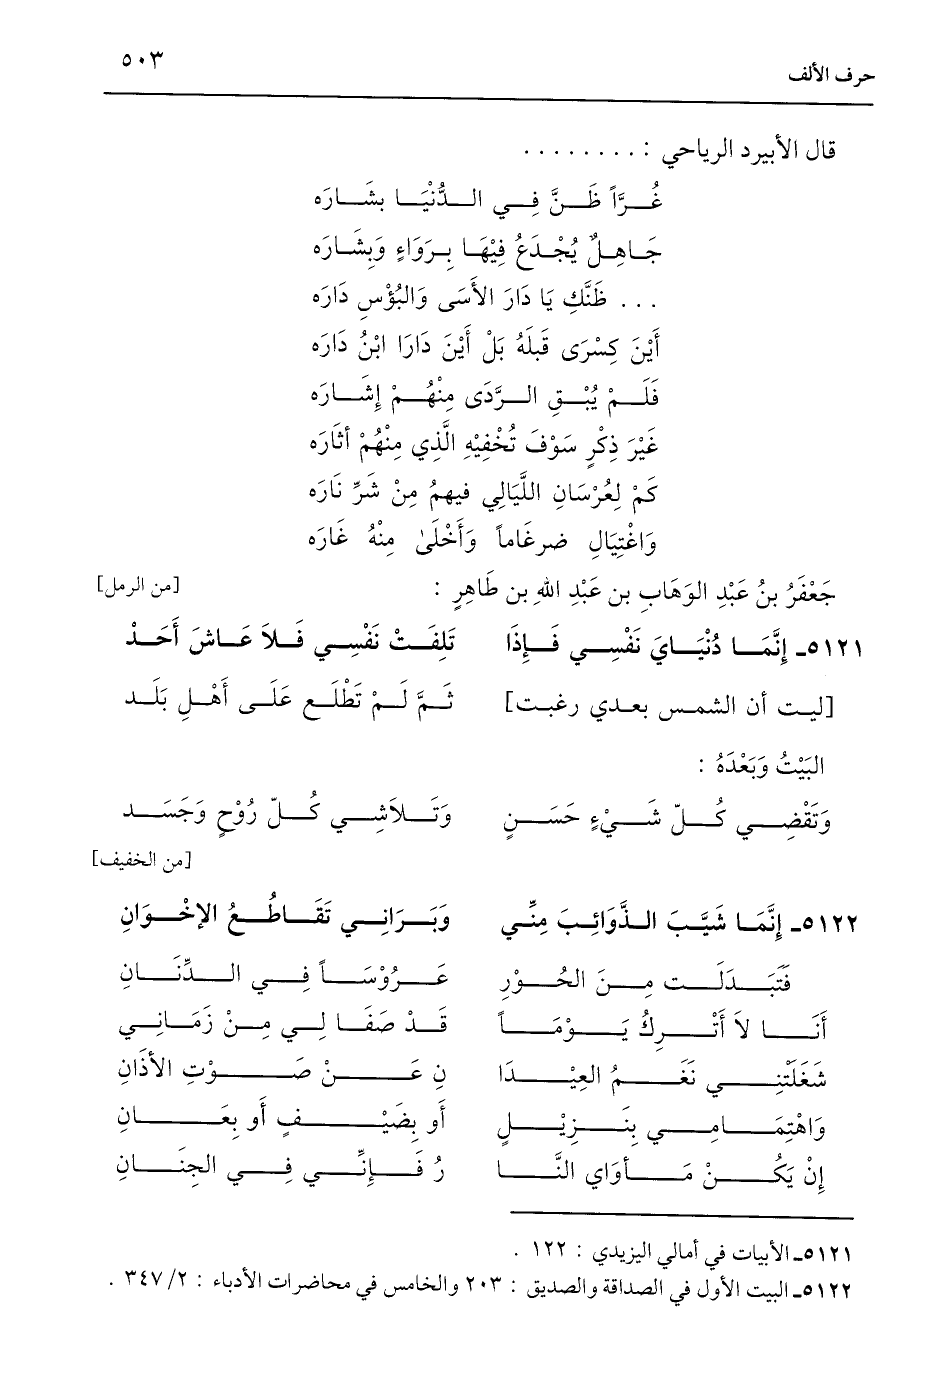 حرف الألف ٥٠٣
قال الأبيرد الرياحي : . . . . . . . .
غُـــرَّاً ظَـــنَّ فِـــي الـــدُّنْيَـــا بشَـــارَه
جَـاهِـلٌ يُخْـدَعُ فِيْهَـا بِـرَوَاءٍ وَبِشَـارَه
. . . ظَنَّكِ يَا دَارَ الأَسَى وَالبُؤْسِ دَارَه
أَيْنَ كِسْرَى قَبلَهُ بَلْ أَيْنَ دَارَا ابْنُ دَارَه
فَلَـــمْ يُبْـــقِ الـــرَّدَى مِنْهُـــمْ إِشَـــارَه
غَيْرَ ذِكْرٍ سَوْفَ تُخْفِيْهِ الَّذِي مِنْهُمْ أثَارَه
كَمْ لِعُرْسَانِ اللَّيَالِي فيهمُ مِنْ شَرِّ نَارَه
وَاغْتِيَالِ ضرغَاماً وَأَخْلَىٰ مِنْهُ غَارَه
جَعْفَرُ بنُ عَبْدِ الوَهَابِ بن عَبْدِ اللهِ بن طَاهِرٍ : [من الرمل]
٥١٢١ـ إِنَّمَـــا دُنْيَـــايَ نَفْسِـــي فَـــإِذَا تَلِفَـــتْ نَفْسِـــي فَـــلاَ عَـــاشَ أَحَـــدْ
[ليـت أن الشمـس بعـدي رغبـت] ثـمَّ لَـمْ تَطْلَـع عَلَـى أَهْـلِ بَلَـد
البَيْتُ وَبَعْدَهُ :
وَتَقْضِـــي كُـــلّ شَـــيْءٍ حَسَـــنٍ وَتَـــلاَشِـــي كُـــلّ رُوْحٍ وَجَسَـــد
[من الخفيف]
٥١٢٢ـ إِنَّمَـا شَيَّـبَ الـذَّوَائِـبَ مِنِّـي وَبَـرَانِـي تَقَـاطُـعُ الإخْـوَانِ
فَتَبَـــدَلَـــت مِـــنَ الحُـــوْرِ عَـــرُوْسَـــاً فِـــي الـــدِّنَـــانِ
أَنَـــا لاَ أَتْـــركُ يَـــوْمَـــاً قَـــدْ صَفَـــا لِـــي مِـــنْ زَمَـــانِـــي
شَغَلَتْنِـــي نَغَـــمُ العِيْـــدَا نِ عَـــنْ صَـــوْتِ الأذَانِ
وَاهْتِمَـــامِـــي بِنَـــزِيْـــلٍ أَو بِضَيْـــفٍ أَو بِعَـــانِ
إِنْ يَكُـــنْ مَـــأوَاي النَّـــا رُ فَـــإِنِّـــي فِـــي الجِنَـــانِ
٥١٢١ـ الأبيات في أمالي اليزيدي : ١٢٢ .
٥١٢٢ـ البيت الأول في الصداقة والصديق : ٢٠٣ والخامس في محاضرات الأدباء : ٣٤٧/٢ .